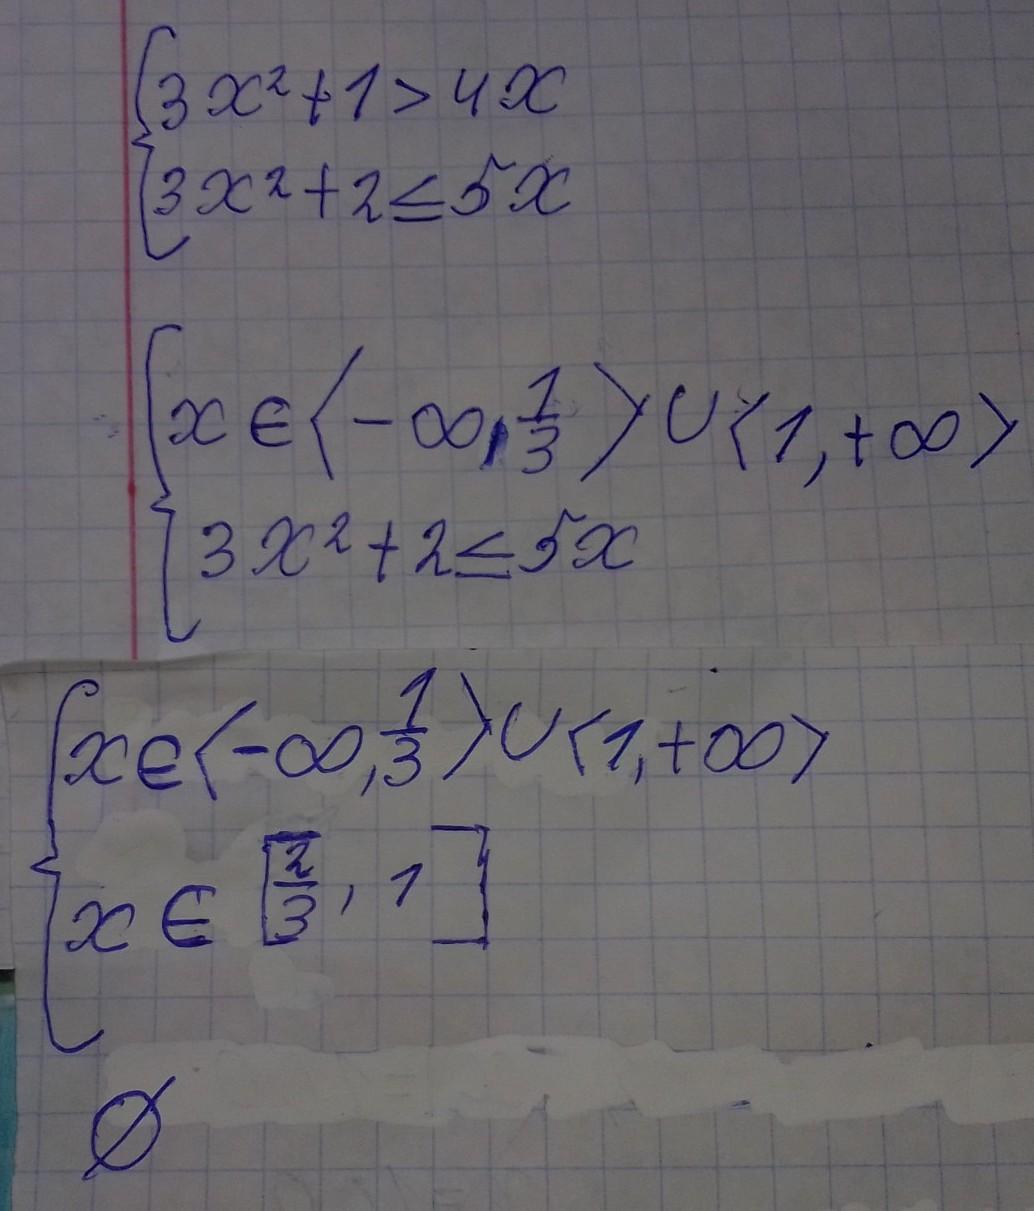 {3x²+1>4x
3x²+2≤5x
{x∈⟨-∞,1/3⟩∪⟨1,+∞⟩
3x²+2≤5x
{x∈⟨-∞,1/3⟩∪⟨1,+∞⟩
x∈[2/3,1]
∅